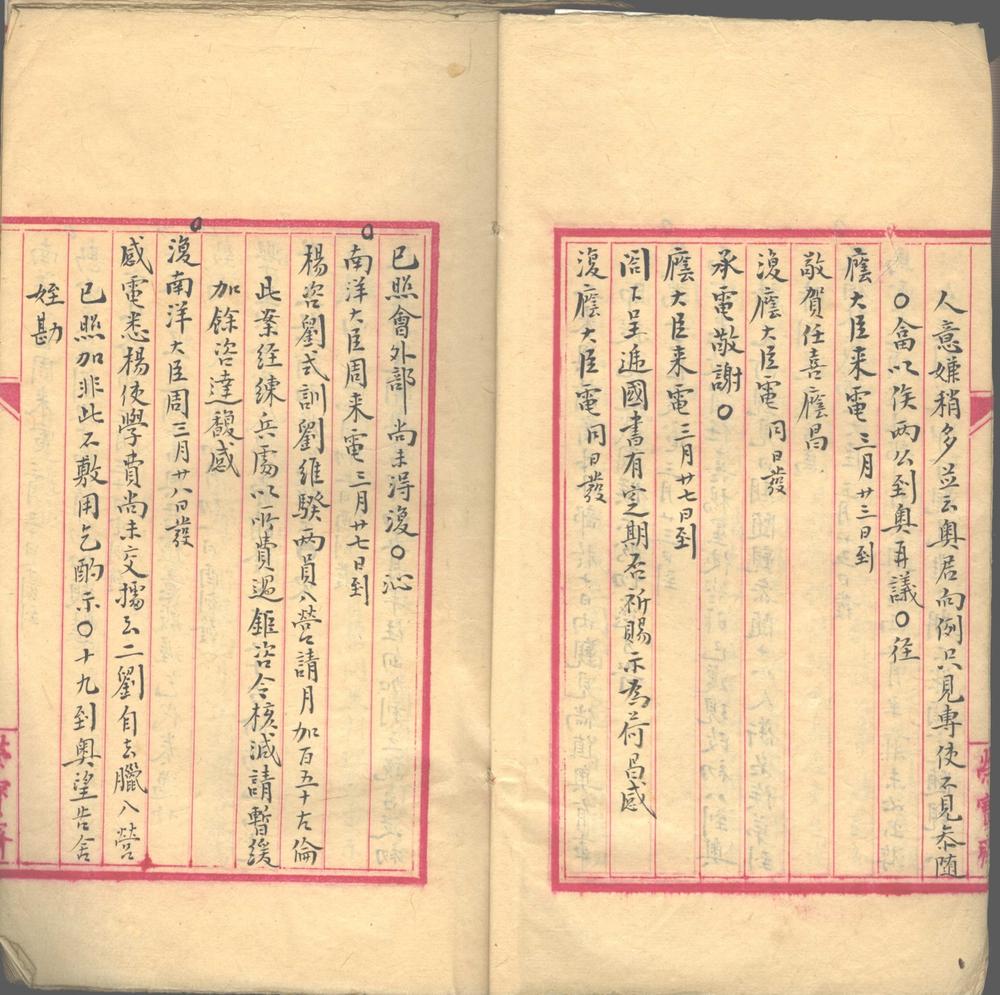 人意嫌稍多並云奧君向例只見專使不見叅隨
〇畣以俟两公到奧再議〇徃
廕大臣来電三月廿三日到
敬賀任喜廕昌
復廕大臣電同日發
承電敬謝〇
廕大臣来電三月廿七日到
閤下呈遞國書有定期否祈賜示為荷昌感
復廕大臣電同日發
已照會外部尚未淂復〇沁
南洋大臣周来電三月廿七日到
楊咨劉式訓劉維騤两員入營請月加百五十古倫
此案経練兵處以所費過鉅咨令核減請暫緩
加餘咨達馥感
復南洋大臣周三月廿八日發
感電悉楊使學費尚未交擂云二劉自去臘入營
已照加非此不敷用乞酌示〇十九到奧望告舍
姪勛
榮寳